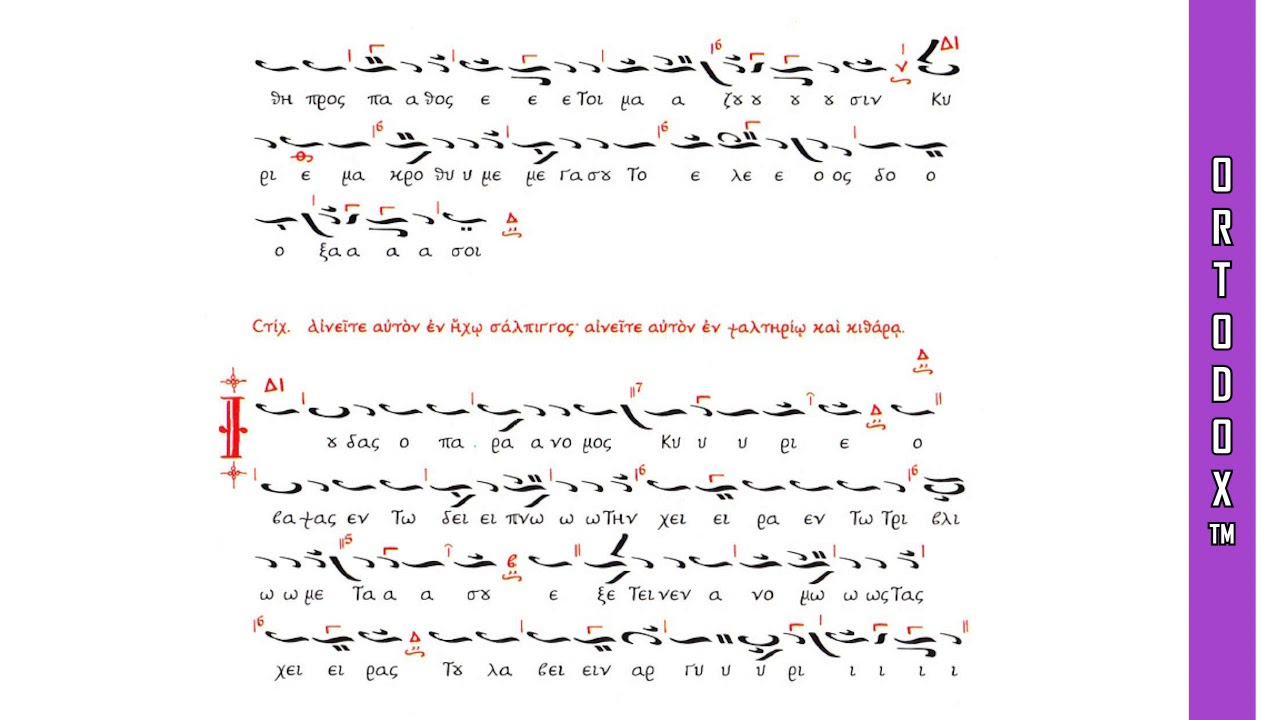 θη προς πα α θος ε ε ε τοι μα α ζȣ ȣ ȣ ȣ σιν Κυ
ρι ε μα κρο θυ υ με με γα σȣ το ε λε ε ο ος δο ο
ο ξα α α α σοι
Στίχ. Αἰνεῖτε αὐτὸν ἐν ἤχῳ σάλπιγγος· αἰνεῖτε αὐτὸν ἐν ψαλτηρίῳ καὶ κιθάρᾳ.
Ι ȣ δας ο πα ρα α νο μος Κυ υ υ ρι ε ο
βα ψας εν τω δει ει πνω ω ω την χει ει ρα εν τω τρι βλι
ω ω με τα α α σȣ ε ξε τει νεν α νο μω ω ως τας
χει ει ρας τȣ λα βει ειν αρ γυ υ υ ρι ι ι ι ι
ORTODOX™